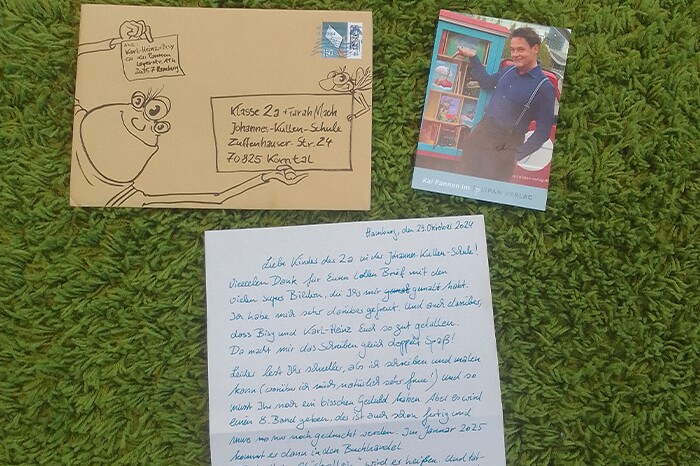 Karl-Heinz & Bisy
c/o Kai Pannen
Klasse 2a + Farah Mach
Johannes-Kullen-Schule
Zuffenhauser-Str. 24
70825 Korntal
Kai Pannen im TULIPAN VERLAG
Hamburg, den 23. Oktober 2024
Liebe Kinder der 2a in der Johannes-Kullen-Schule!
Vieeelen Dank für Euren tollen Brief mit den
vielen super Bildern, die Ihr mir gemalt habt.
Ich habe mich sehr darüber gefreut. Und auch darüber,
dass Bisy und Karl-Heinz Euch so gut gefallen.
Da macht mir das Schreiben gleich doppelt Spaß!
Leider lest Ihr schneller, als ich schreiben und malen
kann (worüber ich mich natürlich sehr freue!) und so
müsst Ihr noch ein bisschen Geduld haben. Aber es wird
einen 8. Band geben, der ist auch schon fertig und
muss nur noch gedruckt werden. Im Januar 2025
kommt er dann in den Buchhandel.
wird er heißen. Und